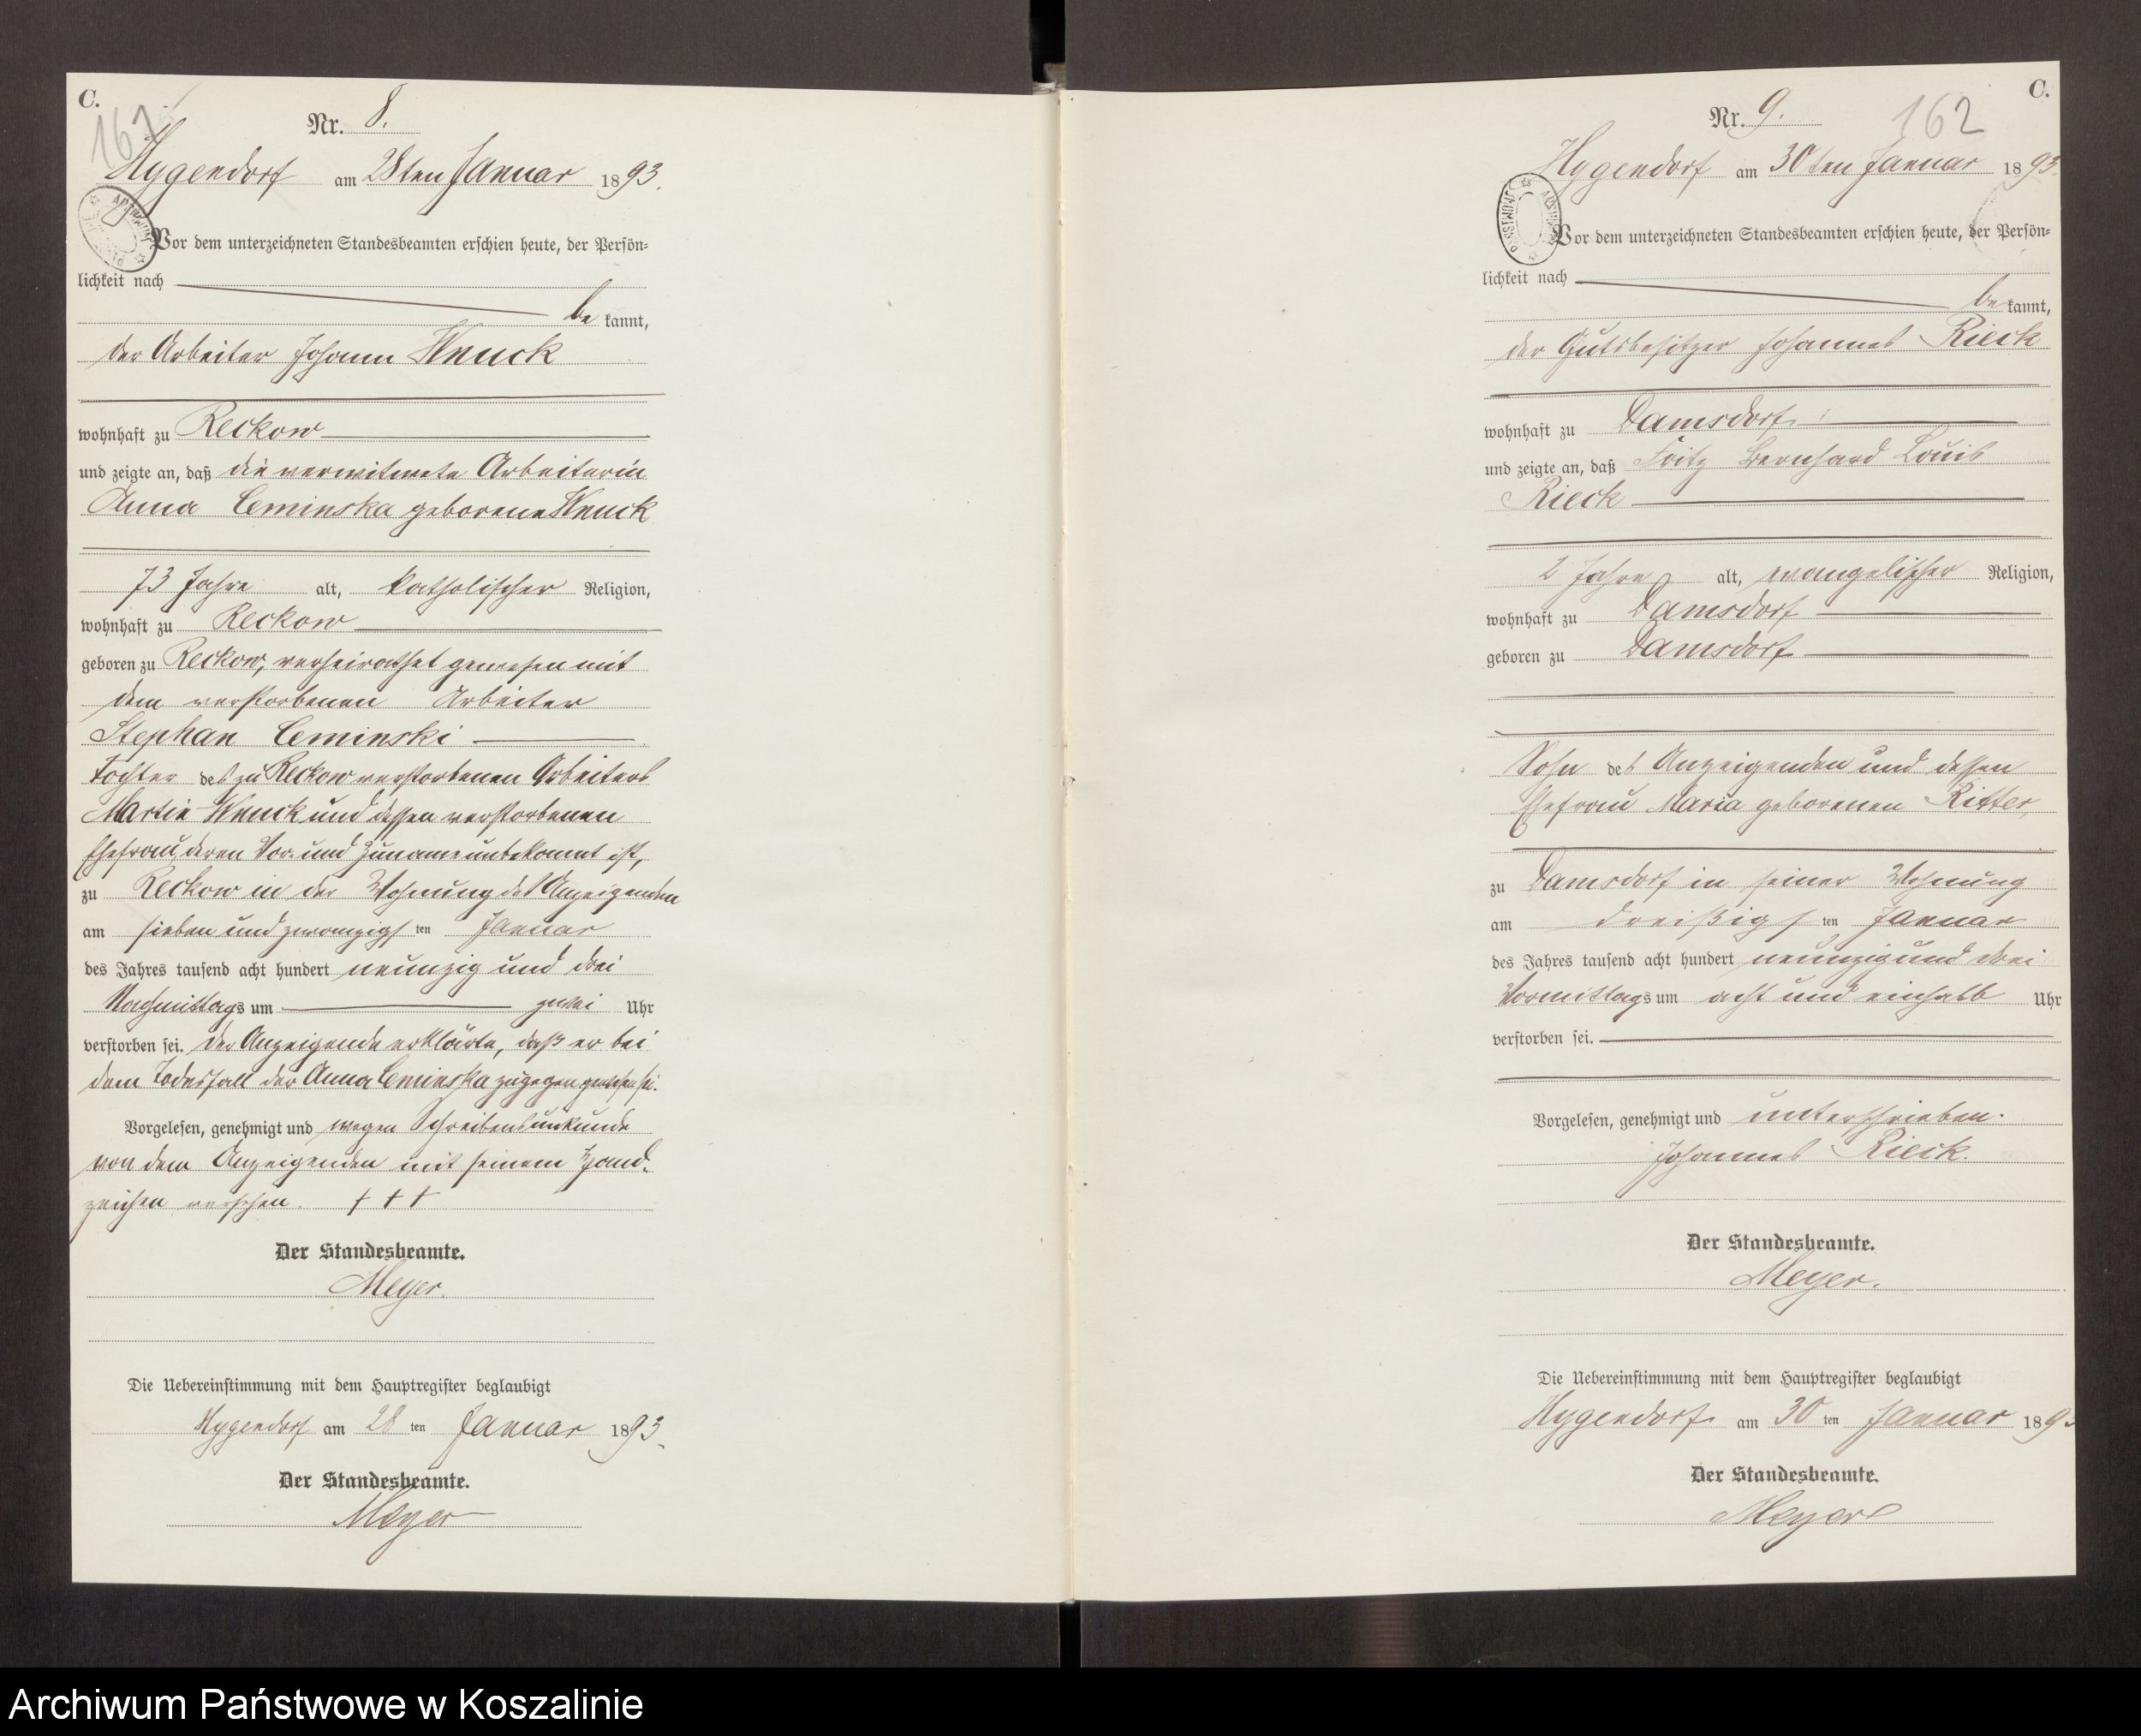 C.
161
Nr. 8.
Hygendorf am 28ten Januar 1893.
Vor dem unterzeichneten Standesbeamten erschien heute, der Persön-
lichkeit nach
be kannt,
der Arbeiter Johann Wnuck
wohnhaft zu Reckow
und zeigte an, daß die verwitwete Arbeiterin
Anna Ceminska geborene Wnuck
73 Jahre alt, katholischer Religion,
wohnhaft zu Reckow
geboren zu Reckow, verheirathet gewesen mit
dem verstorbenen Arbeiter
Stephan Ceminski
Tochter des zu Reckow verstorbenen Arbeiters
Martin Wnuck und dessen verstorbenen
Ehefrau, deren Vor- und Zuname unbekannt ist,
zu Reckow in der Wohnung des Anzeigenden
am sieben und zwanzigsten Januar
des Jahres tausend acht hundert neunzig und drei
Nachmittags um zwei Uhr
verstorben sei. Der Anzeigende erklärte, daß er bei
dem Todesfall der Anna Ceminska zugegen gewesen sei.
Vorgelesen, genehmigt und wegen Schreibensunkunde
von dem Anzeigenden mit seinem Hand-
zeichen versehen. + + +
Der Standesbeamte.
Meyer.
Die Uebereinstimmung mit dem Hauptregister beglaubigt
Hygendorf am 28 ten Januar 1893.
Der Standesbeamte.
Meyer
C.
162
Nr. 9.
Hygendorf am 30ten Januar 1893.
Vor dem unterzeichneten Standesbeamten erschien heute, der Persön-
lichkeit nach
be kannt,
der Gutsbesitzer Johannes Rieck
wohnhaft zu Damsdorf
und zeigte an, daß Fritz Bernhard Louis
Rieck
2 Jahre alt, evangelischer Religion,
wohnhaft zu Damsdorf
geboren zu Damsdorf
Sohn des Anzeigenden und dessen
Ehefrau Maria geborenen Ritter,
zu Damsdorf in seiner Wohnung
am dreißigsten Januar
des Jahres tausend acht hundert neunzig und drei
Vormittags um acht und einhalb Uhr
verstorben sei.
Vorgelesen, genehmigt und unterschrieben.
Johannes Rieck.
Der Standesbeamte.
Meyer.
Die Uebereinstimmung mit dem Hauptregister beglaubigt
Hygendorf am 30 ten Januar 1893
Der Standesbeamte.
Meyer
Archiwum Państwowe w Koszalinie